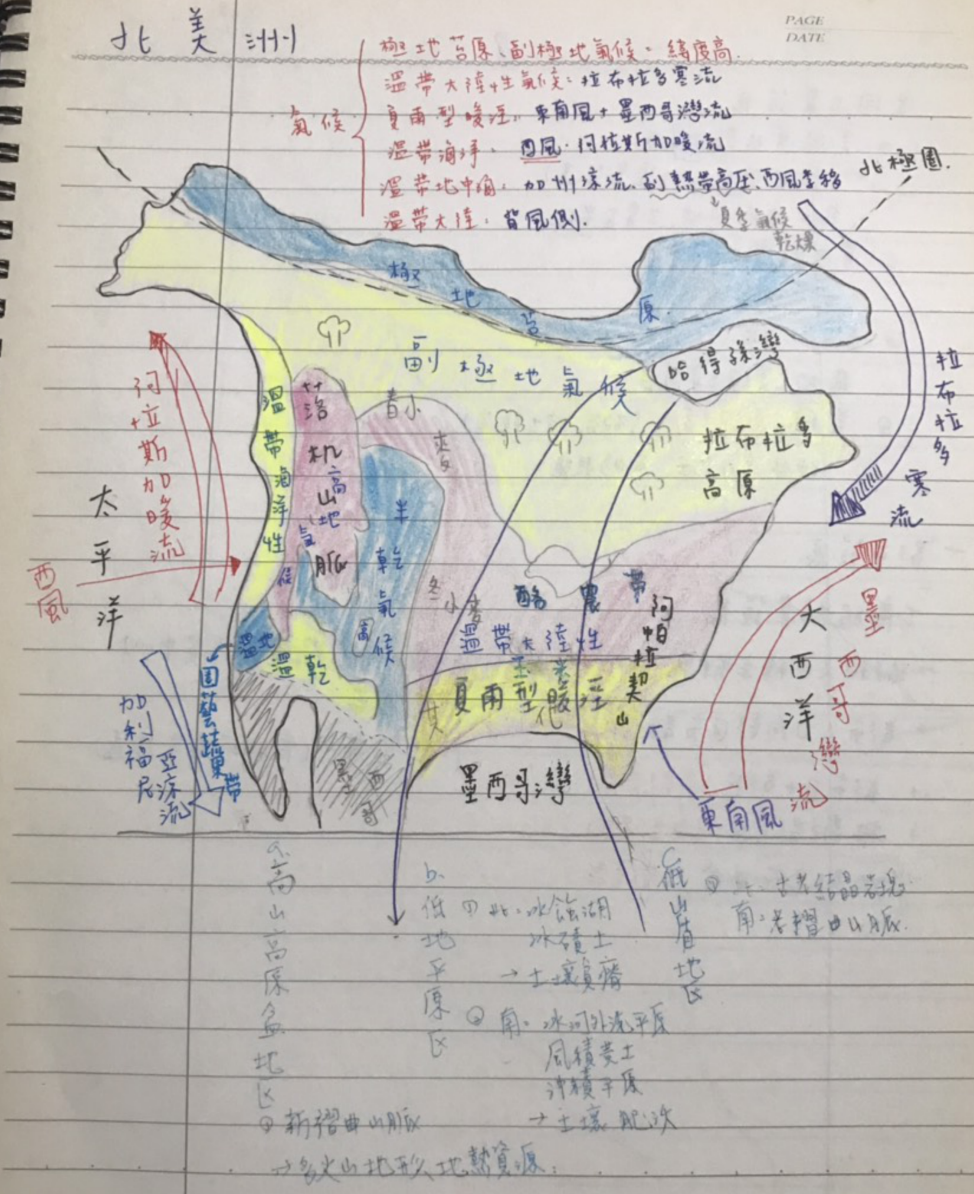 PAGE
DATE
北美洲
氣候
極地苔原、副極地氣候：緯度高.
溫帶大陸性氣候：拉布拉多寒流
夏雨型暖溼：東南風+墨西哥灣流
溫帶海洋：西風·阿拉斯加暖流
溫帶地中海：加州涼流、副熱帶高壓、西風季移
夏季氣候
乾燥
溫帶大陸：背風側.
北極圈.
極地苔原
副極地氣候
哈得孫灣
拉布拉多
高原
拉布拉多寒流
阿拉斯加暖流
太平洋
西風
溫帶海洋性
氣候
落机山脈
高地
春小麥
半乾氣候
冬小麥
酪農帶
溫帶大陸性
玉米
夏雨型暖溼
阿帕拉契山
溫地
溫乾
園藝蔬果帶
加利福尼亞涼流
墨西哥
墨西哥灣
大西洋
墨西哥灣流
東南風
a.高山高原盆地区
①新褶曲山脈
→多火山地形、地熱資源.
b.低地平原区
①北：冰蝕湖
冰磧土
→土壤貧瘠
②南：冰河外洗平原
風積黃土
沖積平原
→土壤肥沃
c.低山盾地区
①北：古老結晶岩塊
南：老褶曲山脈.